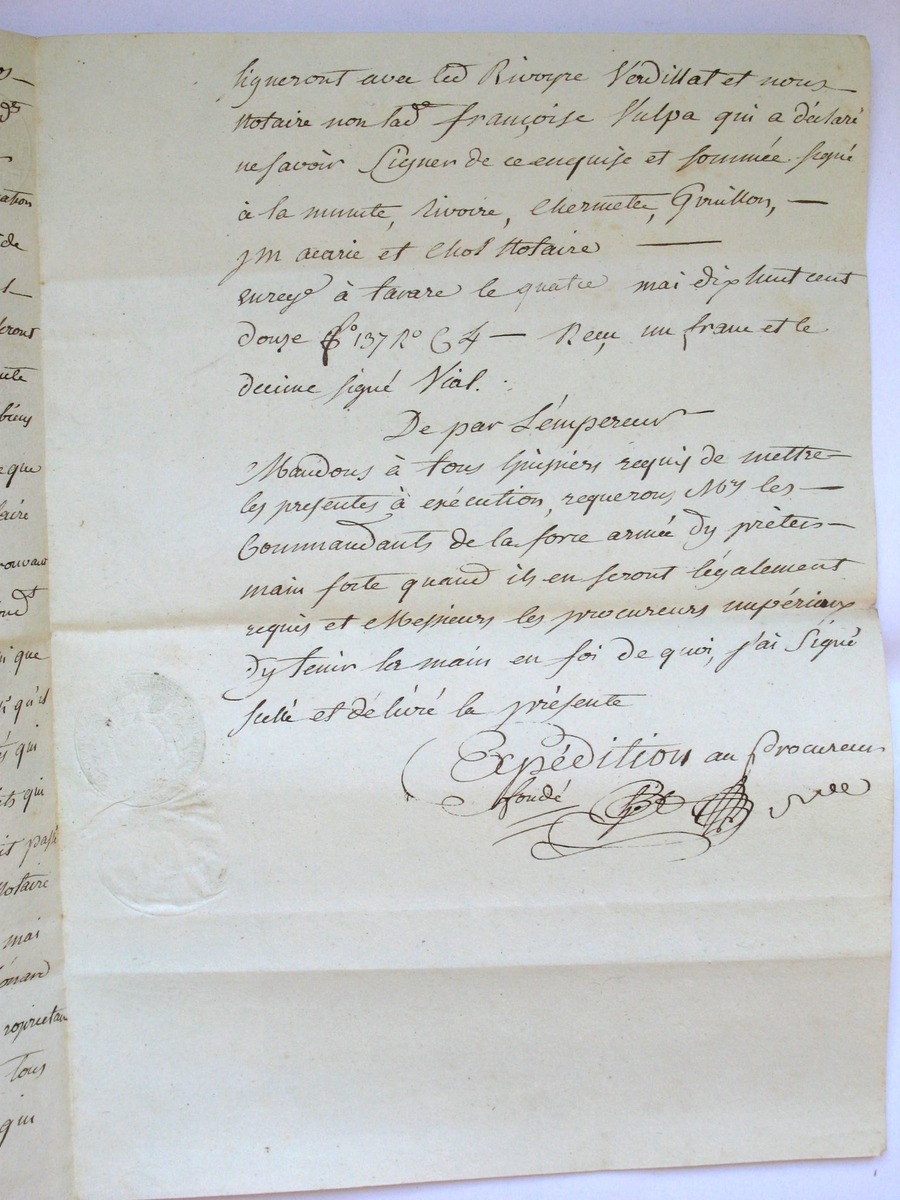 signeront avec led Rivoyre Verdillat et nous
Notaire non lad.e françoise Vulpa qui a déclaré
ne savoir Signer de ce enquise et sommée signé
à la minute, rivoire, Chermette, Guillon, —
jm acarie et Chol Notaire —
enreg.e à tarare le quatre mai dix huit cent
douze f.o 137 R.o C 4 — Reçu un franc et le
decime signé Vial.
De par L'émpereur
Mandons à tous huissiers requis de mettre
les presentes à exécution, requerons Mrs les —
Commandants de la force armée dy prêter
main forte quand ils en seront légalement
requis et Messieurs les procureurs impériaux
dy tenir la main en foi de quoi, j'ai Signé
scellé et délivré la présente
Expédition au Procureur
fondé
ation
de
eront
biens
que
aire
rouvant
que
qu'ils
qui
qui
Notaire
mai
roprietaire
tous
qui